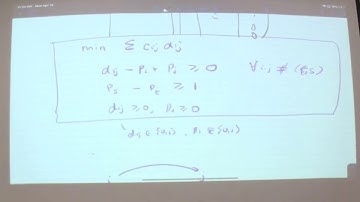 min Σ cij dij
dij - Pi + Pj ≥ 0 ∀ i,j ≠
Ps - Pt ≥ 1
dij ≥ 0, Pi ≥ 0
dij ∈ {0,1}, Pi ∈ {0,1}